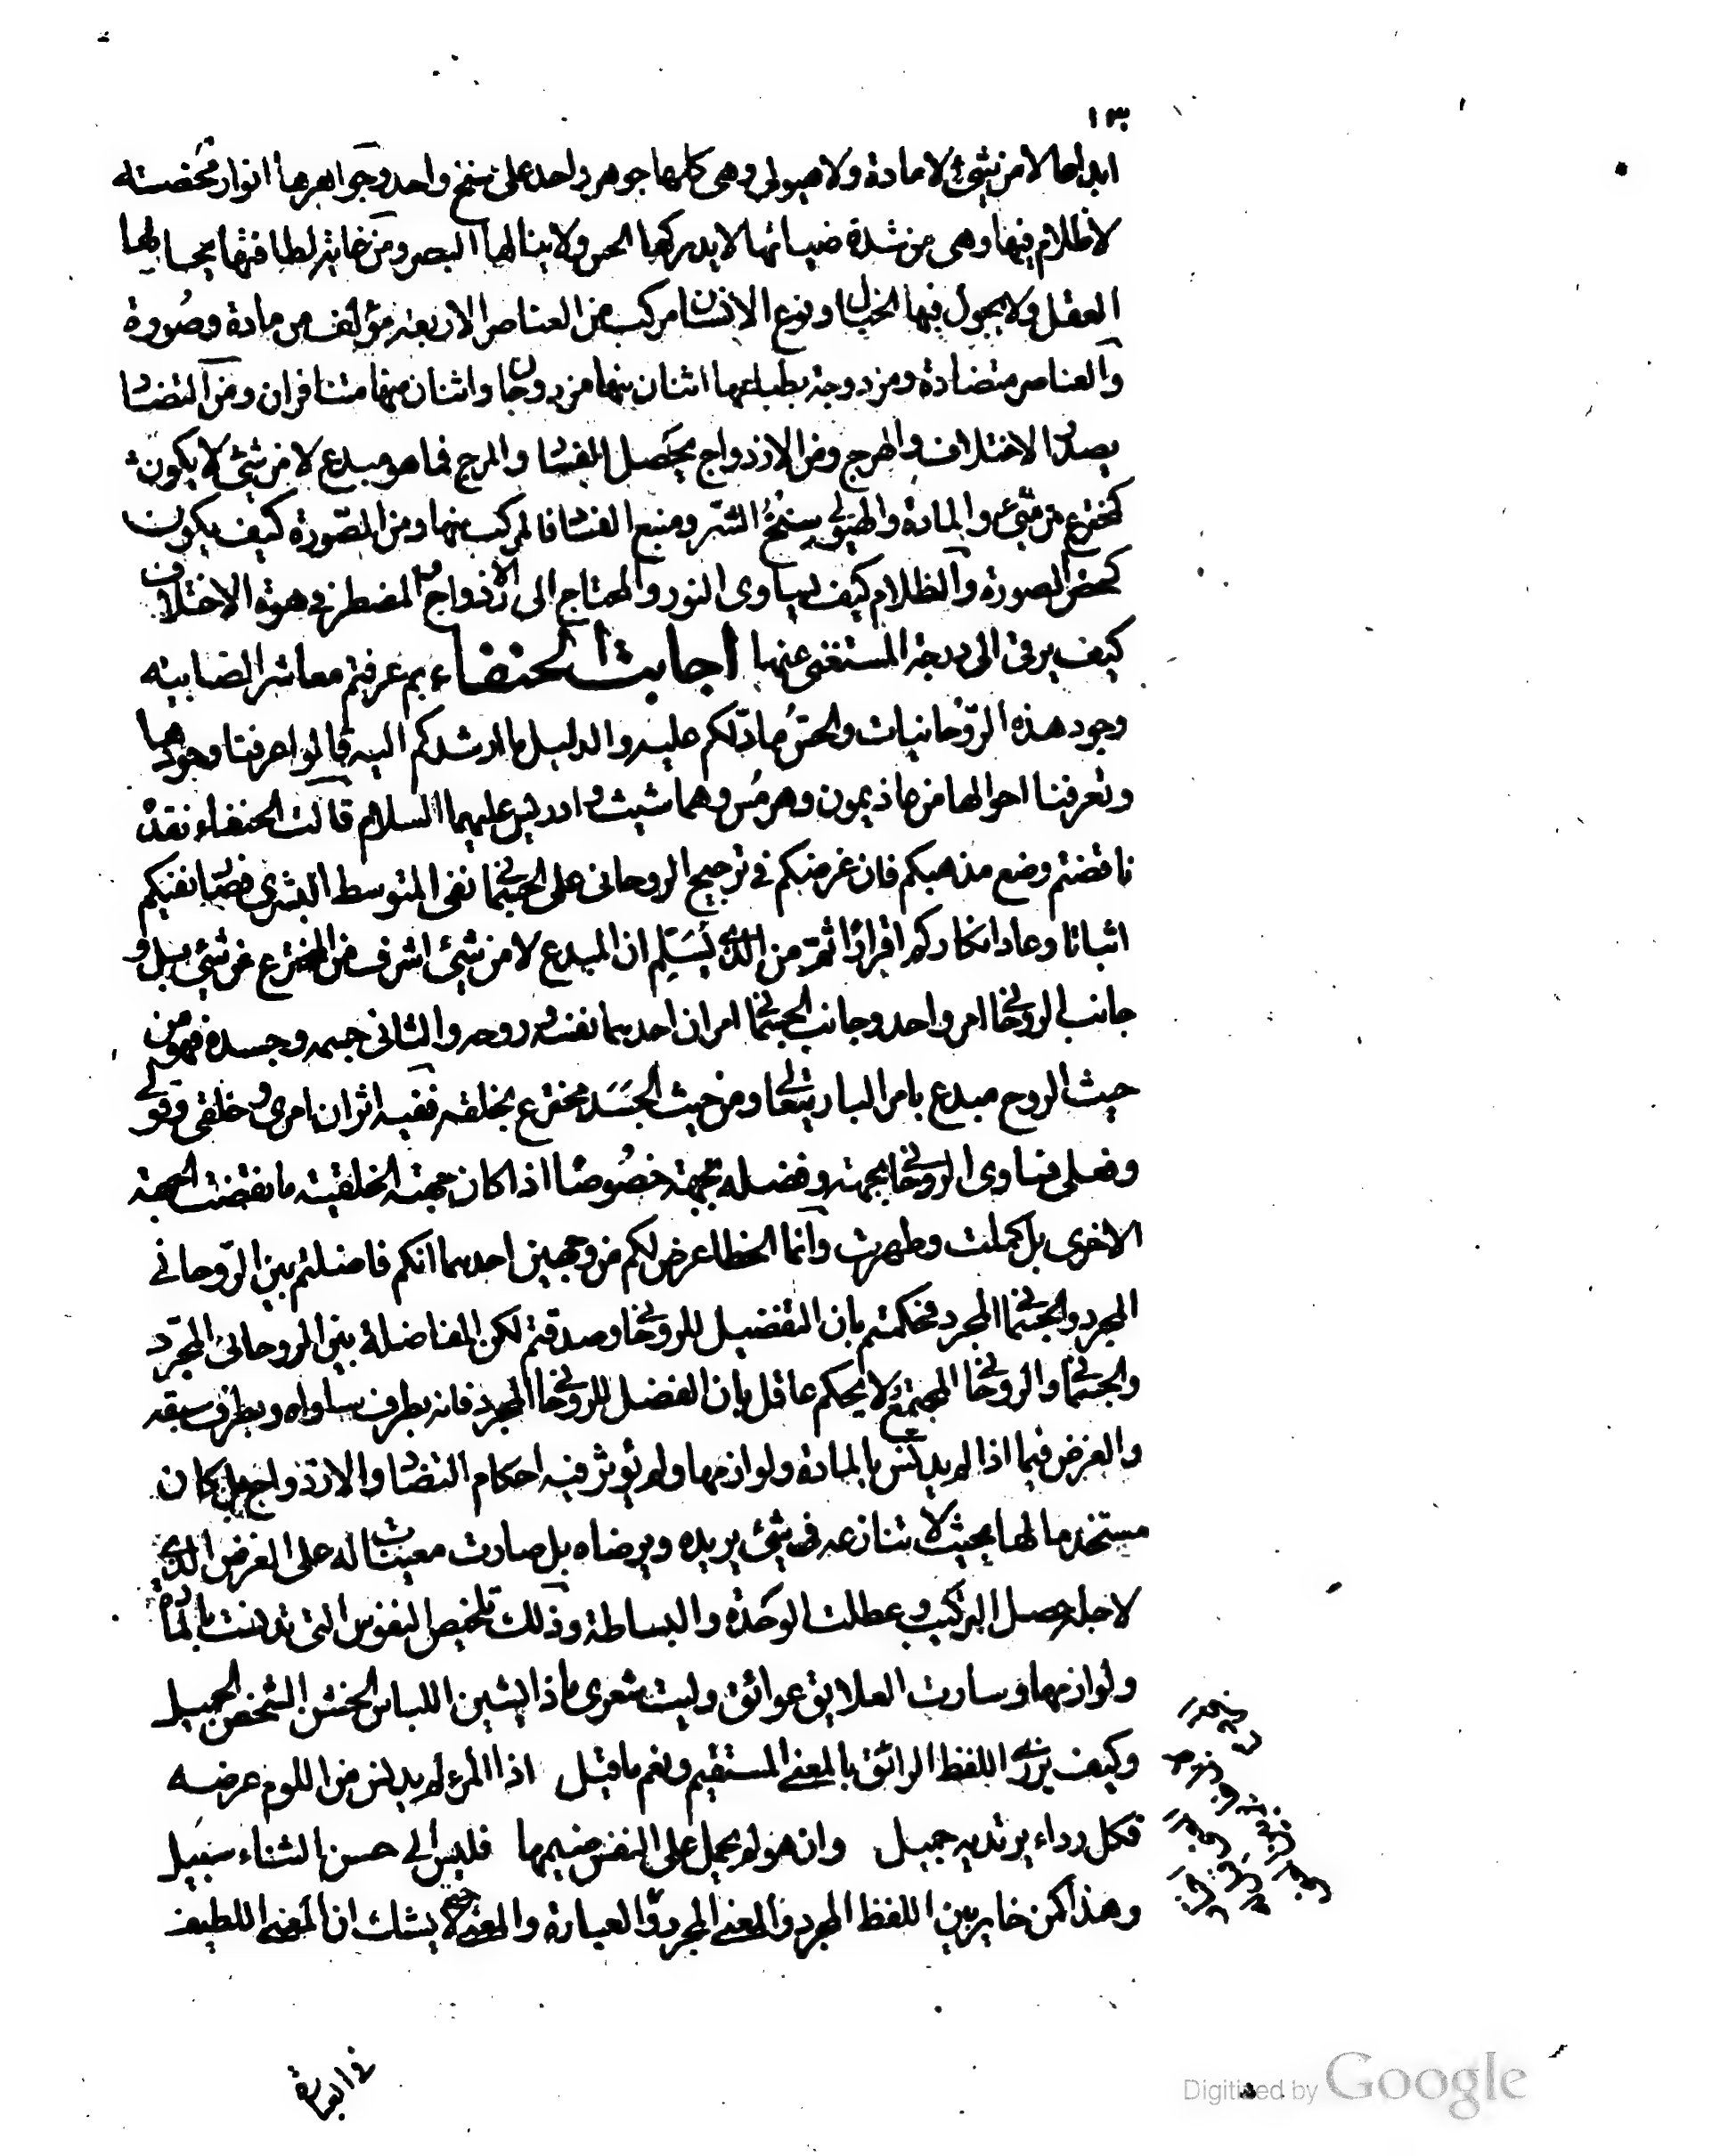 ١٣
ابداعا لا من شئ لا مادة ولا هيولى وهى كلها جوهر واحد على سنخ واحد وجواهرها انوار محضته
لا ظلام فيها وهى من شدة ضيائها لا يدركها الحس ولا ينالها البصر ومن غاية لطافتها يحار فيها
العقل ولا يجول فيها الخيال ونوع الانسان مركب من العناصر الاربعة مؤلف من مادة وصورة
والعناصر متضادة ومزدوجة بطباعها اثنان منها مزدوجان واثنان منها متنافران ومن التضاد
يصدر الاختلاف والهرج ومن الازدواج يحصل الفساد والمرج فما هو مبدع لا من شئ لا يكون
كمخترع من شئ والمادة والهيولى سنخ الشر ومنبع الفساد فالمركب منها ومن الصورة كيف يكون
كمحض الصورة والظلام كيف يساوى النور والمحتاج الى الازدواج المضطر فى هوة الاختلاف
كيف يرقى الى درجة المستغنى عنها اجابت الحنفاء بم عرفتم معاشر الصابية
وجود هذه الروحانيات والحس ما دلكم عليه والدليل ما ارشدكم اليه قالوا عرفنا وجودها
وتعرفنا احوالها من عاذيمون وهرمس وهما شيث وادريس عليهما السلام قالت الحنفاء فقد
ناقضتم وضع مذهبكم فان غرضكم فى ترجيح الروحانى على الجسمانى نفى المتوسط البشرى فصار نفيكم
اثباتا وعاد انكاركم اقرارا ثم من الذى يسلم ان المبدع لا من شئ اشرف من المخترع عن شئ بل و
جانب الروحانى امر واحد وجانب الجسمانى امران احدهما نفسه وروحه والثانى جسمه وجسده فهو من
حيث الروح مبدع بامر البارى تعالى ومن حيث الجسد مخترع بخلقه ففيه اثران امرى وخلقى وقولى
وفعلى فساوى الروحانى بجهة وفضله بجهة خصوصا اذا كان جهته الخلقية ما نقضت الجهة
الاخرى بل كملت وطهرت وانما الخطا عرض لكم من وجهين احدهما انكم فاضلتم بين الروحانى
المجرد والجسمانى المجرد فحكمتم بان التفضيل للروحانى وصدقتم لكن المفاضلة بين الروحانى المجرد
والجسمانى والروحانى المجتمع لا يحكم عاقل بان الفضل للروحانى المجرد فانه بطرف ساواه وبطرف سبقه
والغرض فيما اذا لم يدنس بالمادة ولوازمها ولم يوثر فيه احكام التضاد والازدواج بل كان
مستخدما لها بحيث لا تنازعه فى شئ يريده ويرضاه بل صارت معينات له على الغرض الذى
لاجله حصل التركيب وعطلت الوحدة والبساطة وذلك تلخيص النفوس التى تدنست بالمادة
ولوازمها وسارت العلايق عوائق وليت شعرى ماذا يشين اللباس الخشن الشخص الجميل
وكيف يزرى اللفظ الرائق بالمعنى المستقيم ونعم ما قيل اذا المرء لم يدنس من اللوم عرضه
فكل رداء يرتديه جميل وان هو لم يحمل على النفس ضيمها فليس الى حسن الثناء سبيل
وهذا كمن خاير بين اللفظ المجرد والمعنى المجرد والعبارة والمعنى لا يشك ان المعنى اللطيف
Digitized by Google